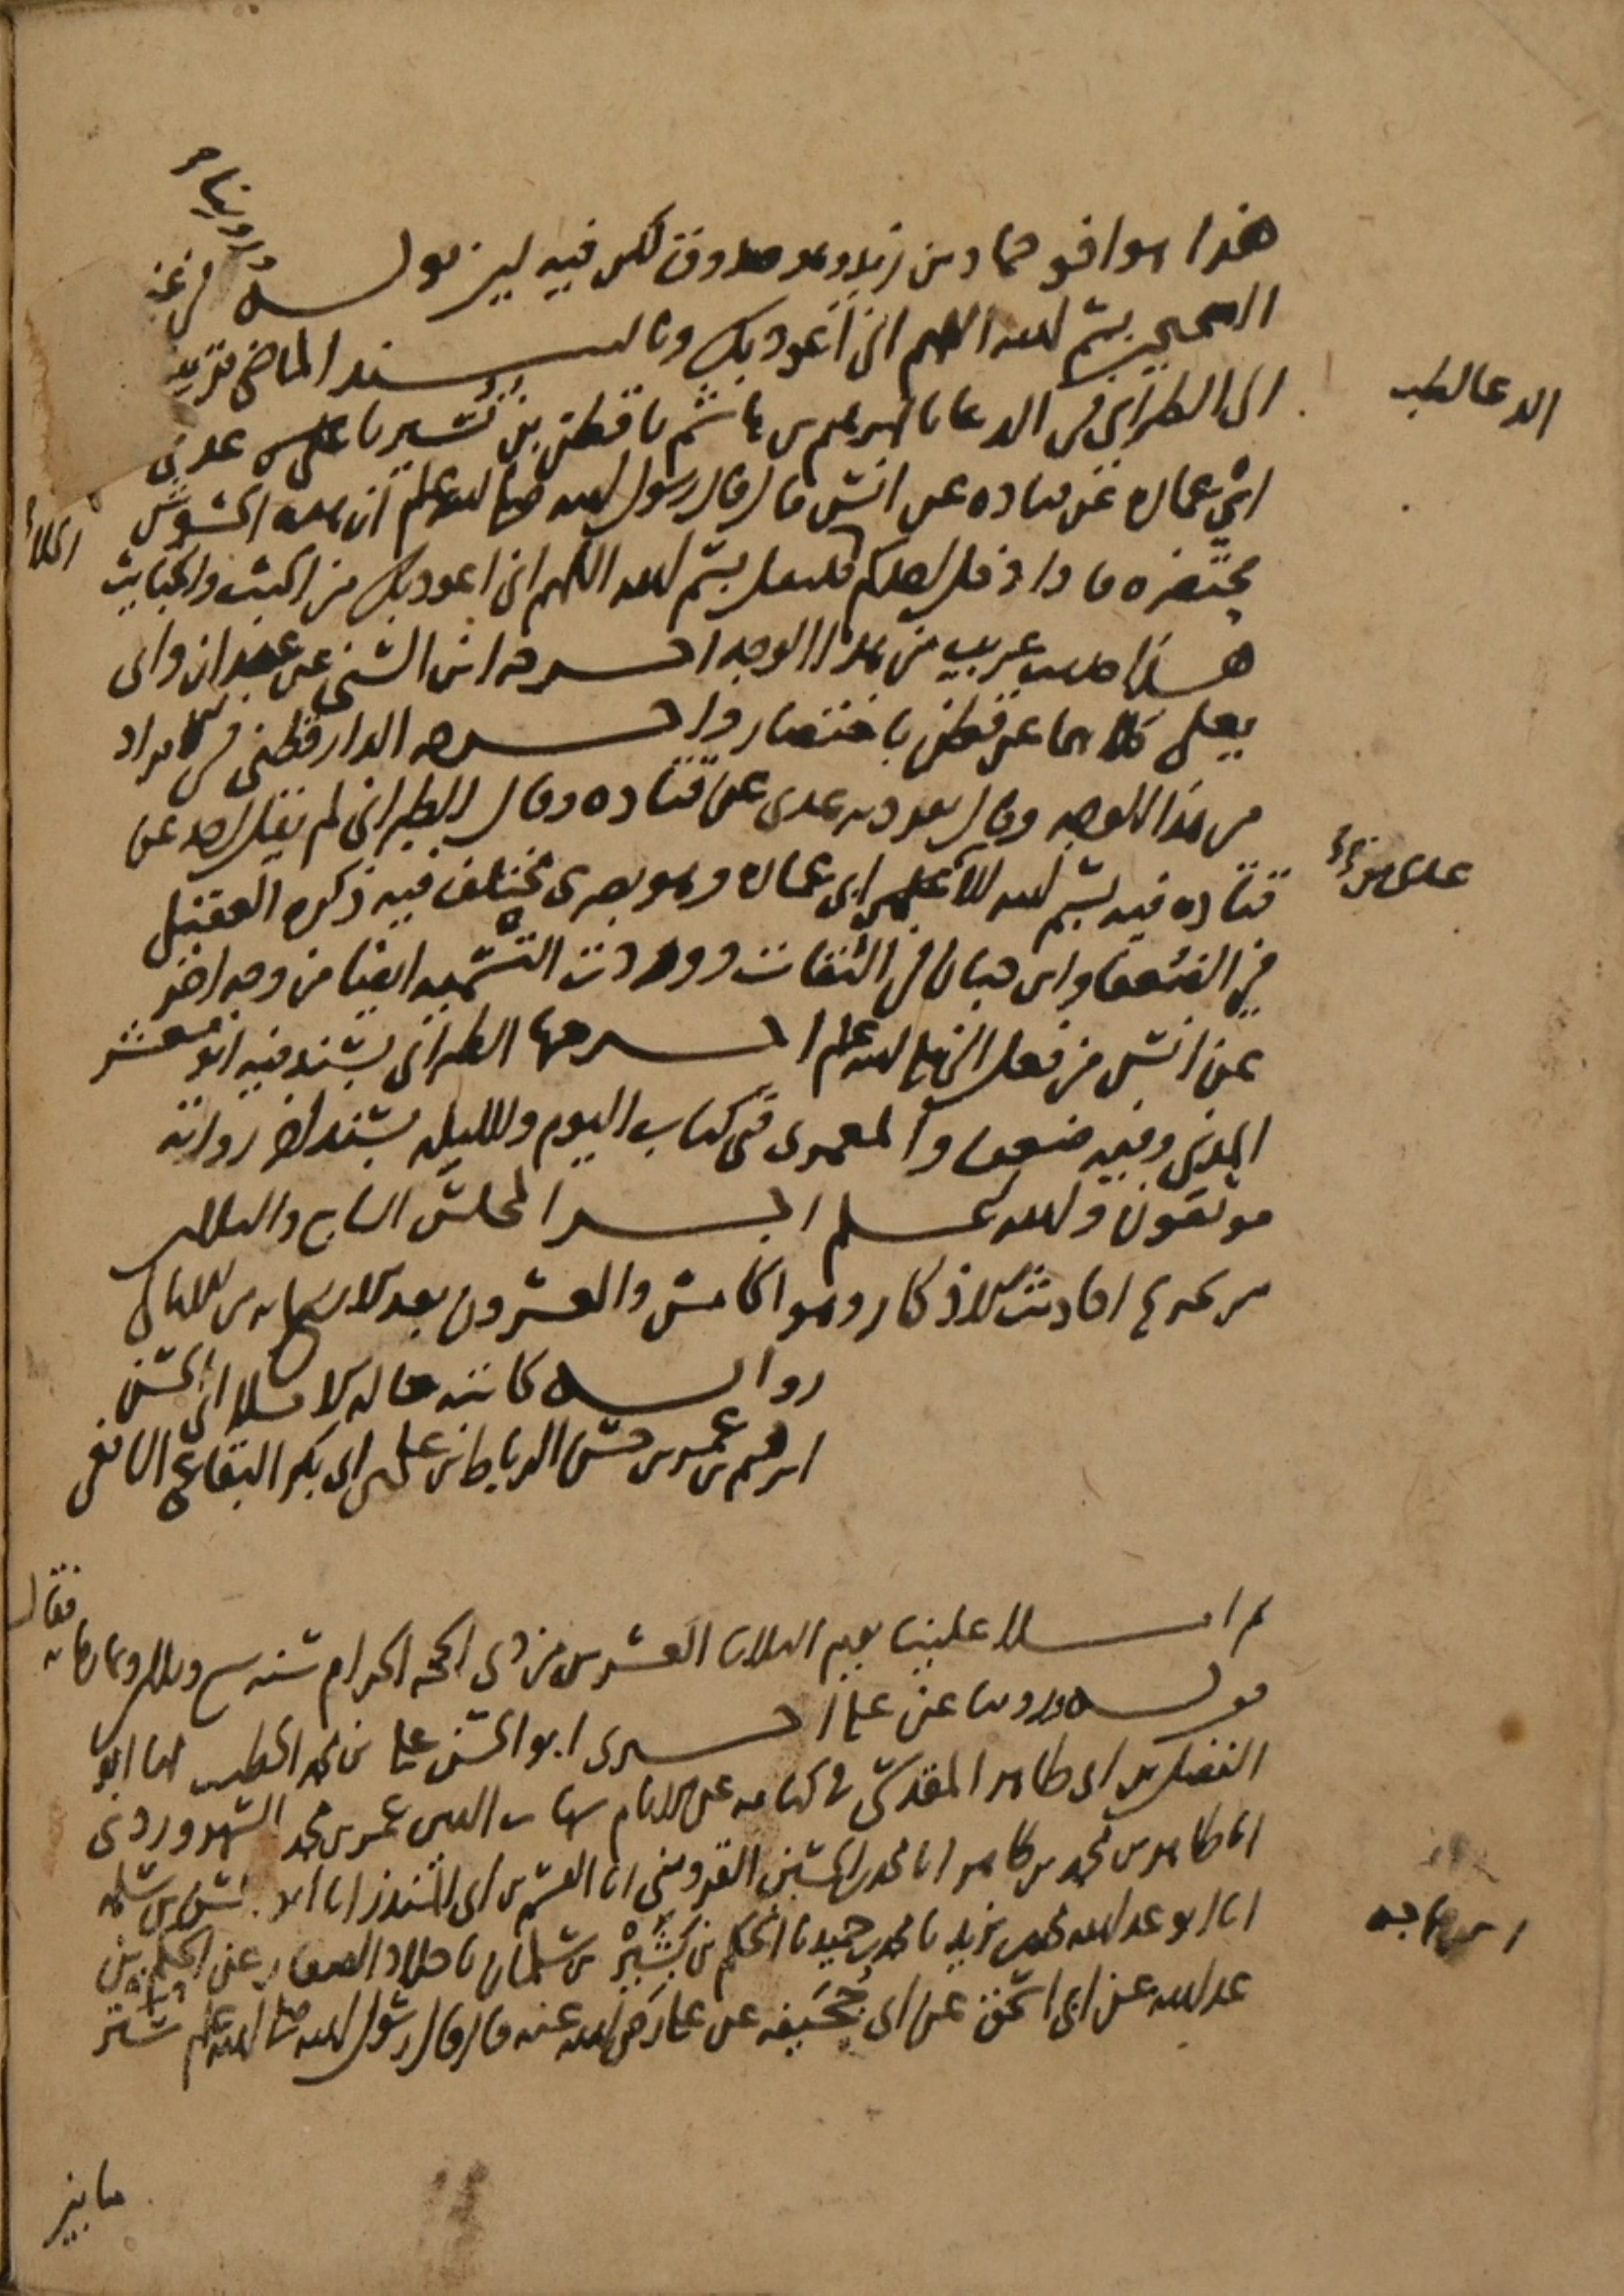 هذا هو اخو حماد بن زيد وهو صدوق لكن فيه لين قولـــه وروينا في غير
الصحيح بسم الله اللهم اني اعوذ بك وبالسند الماضي قريبا
الى الطبراني في الدعا نا ابرهيم بن هاشم نا قطن بن نسير نا عدي بن
ابي عماره عن قتاده عن انس قال قال رسول الله صلى الله عليه وسلم ان هذه الحشوش
محتضره فاذا دخل احدكم الخلا فليقل بسم الله اللهم اني اعوذ بك من الخبث والخبايث
هذا حديث غريب من هذا الوجه اخرجه ابن السني عن عبدان وابي
يعلى كلاهما عن قطن باختصار واخرجه الدارقطني في الافراد
من هذا الوجه وقال تفرد به عدي عن قتاده وقال الطبراني لم يقل احد عن
قتاده فيه بسم الله الا عدي بن ابي عماره وهو بصري مختلف فيه ذكره العقيلي
في الضعفا وابن حبان في الثقات ووردت التسميه ايضا من وجه اخر
عن انس من فعل النبي صلى الله عليه وسلم اخرجها الطبراني بسند فيه ابو معشر
المدني وفيه ضعف والمعمري في كتاب اليوم والليله بسند اخر رواته
موثقون والله اعلم اخر المجلس السابع والثلاثين
من تخريج احاديث الاذكار وهو الخامس والعشرون بعد الاربعمايه من الامالي
روايـــه كاتبه حاله الاملا ابي الحسن
ابرهيم بن عمر بن حسن الرباط بن علي بن ابي بكر البقاعي الشافعي
ثم امــلا علينا يوم الثلاثا العشرين من ذي الحجه الحرام سنه سبع وثلاثين وثمانمايه فقال
قولـــه وروينا عن علي اخبرني ابو الحسن علي بن محمد الخطيب انا ابو
الفضل بن ابي طاهر المقدسي في كتابه عن الامام شهاب الدين عمر بن محمد السهروردي
انا طاهر بن محمد بن طاهر انا محمد بن الحسين القزويني انا القسم بن ابي المنذر انا ابو الحسن بن سلمه
انا ابو عبد الله محمد بن يزيد نا محمد بن حميد نا الحكم بن بشير بن سلمان نا خلاد الصفار عن الحكم بن
عبد الله عن ابي اسحق عن ابي جحيفه عن علي رضي الله عنه قال قال رسول الله صلى الله عليه وسلم ستر
ما بين
الدعا للطبراني
ابن ماجه